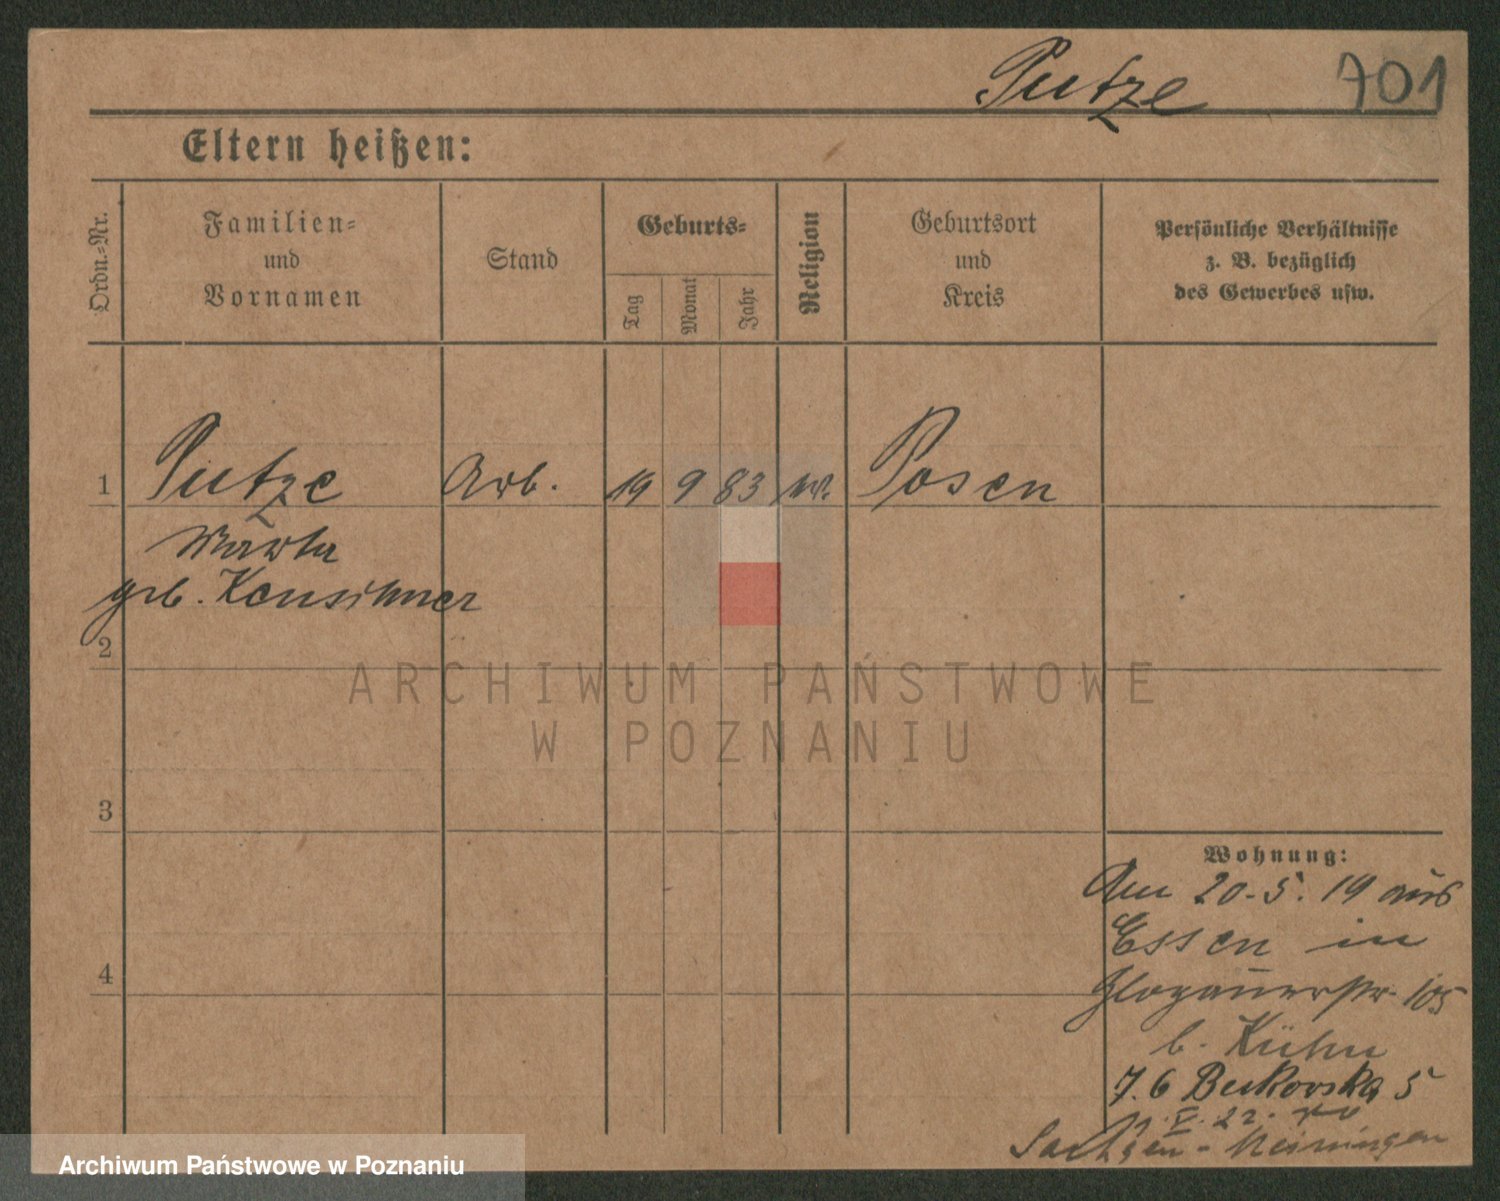 Putze 701
Eltern heißen:
Ordn.-Nr.
Familien-
und
Vornamen
Stand
Geburts-
Tag
Monat
Jahr
Religion
Geburtsort
und
Kreis
Persönliche Verhältnisse
z. B. bezüglich
des Gewerbes usw.
1 Putze Arb. 19 9 83 Posen
Martha
geb.
2
ARCHIWUM PAŃSTWOWE
W POZNANIU
3
Wohnung:
Am 20.5.19 aus
Essen in
4
Glogauerstr. 105
b. Kühn
7.6 Bukowska 5
V. 22.
Sachsen-Meiningen
Archiwum Państwowe w Poznaniu